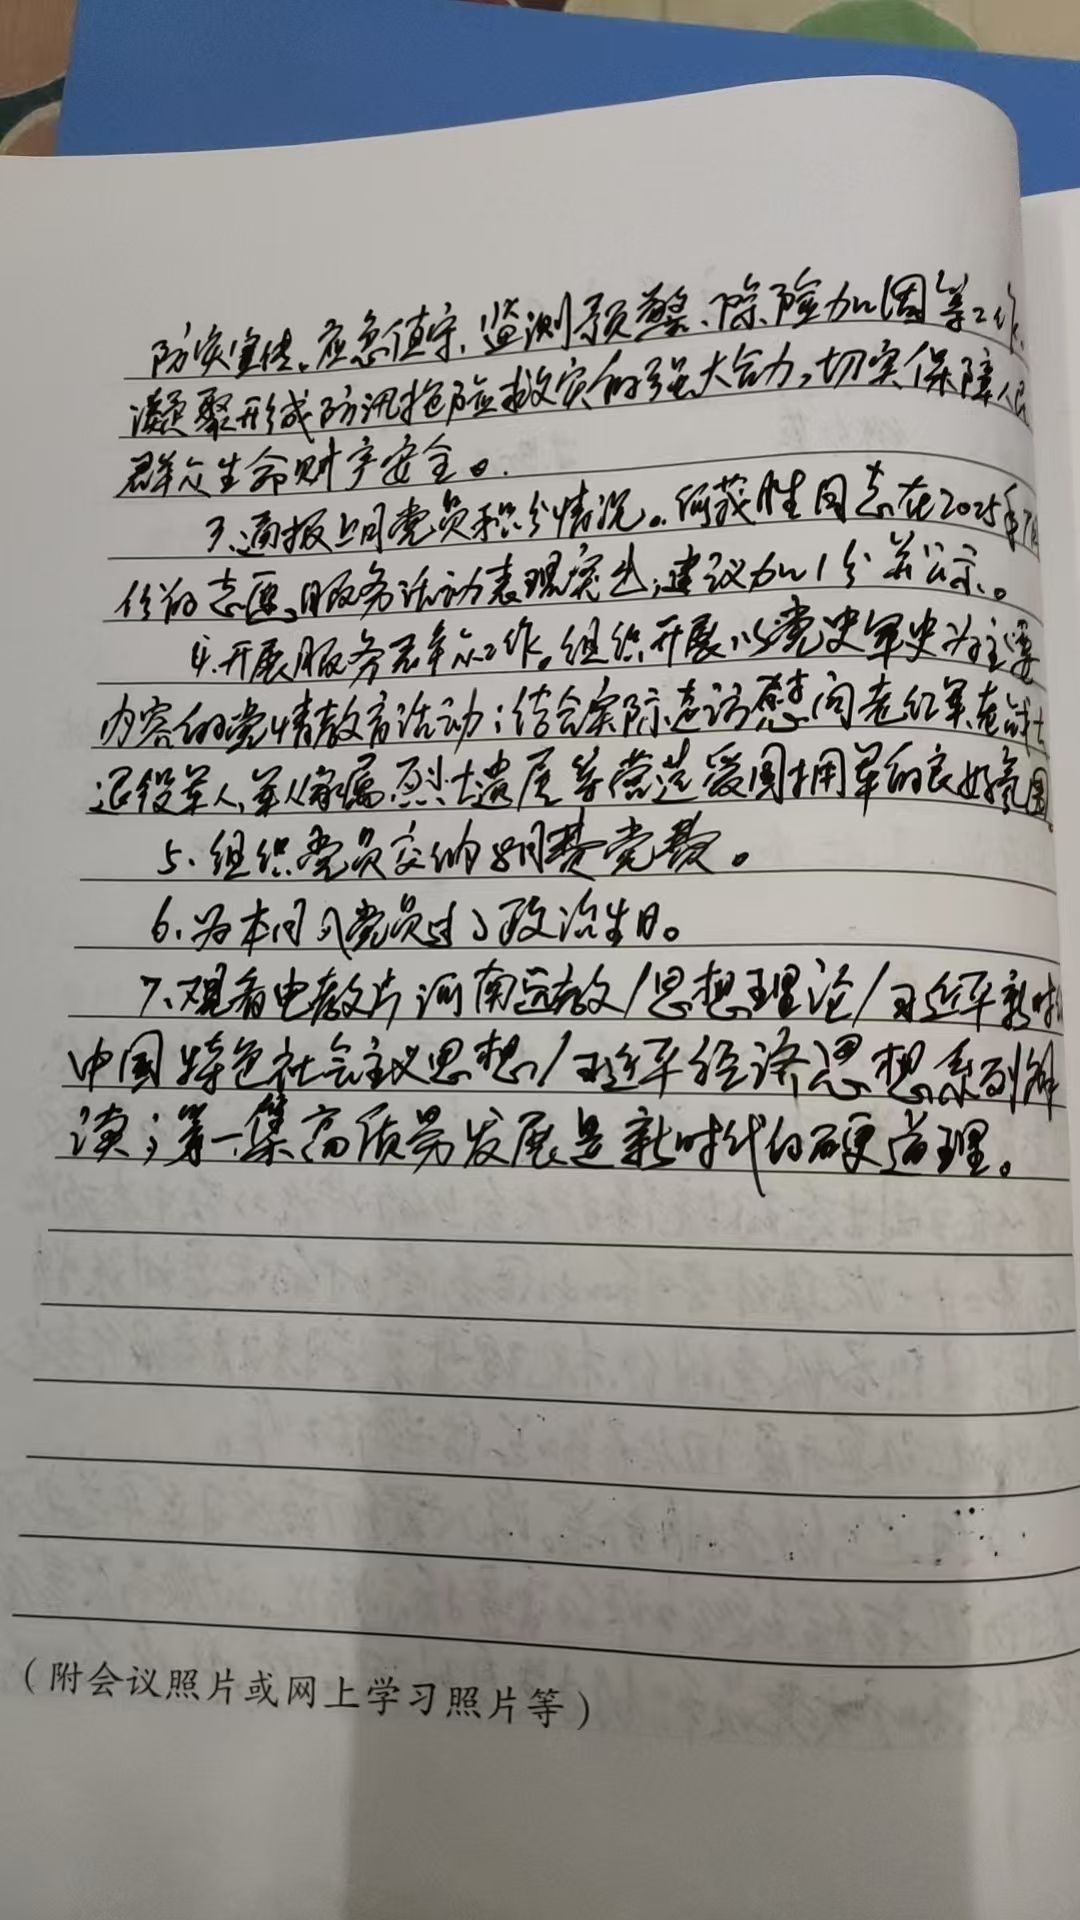 防灾宣传、应急值守、监测预警、除险加固等工作,
凝聚形成防汛抢险救灾的强大合力,切实保障人民
群众生命财产安全。
3、通报上月党员积分情况。何茂胜同志在2025年7月
份的志愿服务活动表现突出,建议加1分并公示。
4.开展服务群众工作。组织开展以党史军史为主要
内容的党情教育活动;结合实际走访慰问老红军老战士
退役军人,军人家属烈士遗属等营造爱国拥军的良好氛围。
5、组织党员交纳8月党费。
6、为本月入党员过了政治生日。
7、观看电教片河南远教/思想理论/习近平新时代
中国特色社会主义思想/习近平经济思想系列解
读;第一集高质量发展是新时代的硬道理。
(附会议照片或网上学习照片等)